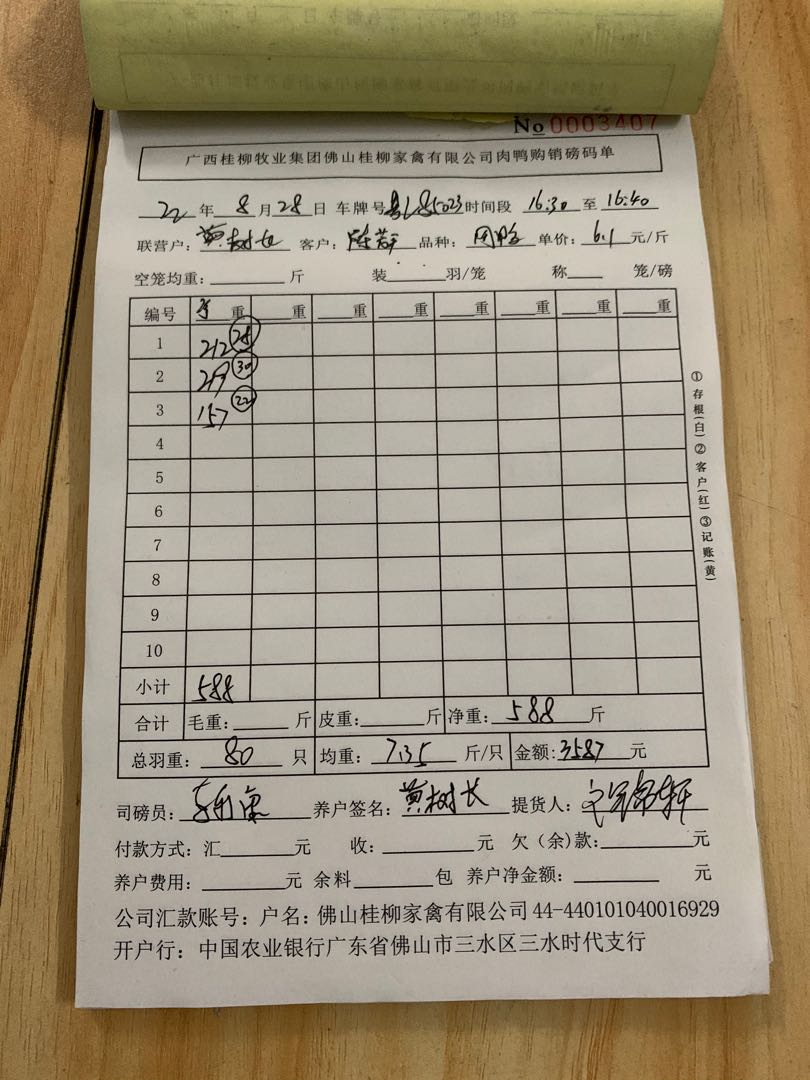 No 0003407
广西桂柳牧业集团佛山桂柳家禽有限公司肉鸭购销磅码单
22 年 8 月 28 日 车牌号 粤L85023 时间段 16:30 至 16:40
联营户: 黄树长 客户: 品种: 单价: 6.1 元/斤
空笼均重: 斤 装 羽/笼 称 笼/磅
编号 重 重 重 重 重 重 重 重
1 212 28
2 219 30
3 157 22
4
5
6
7
8
9
10
小计 588
合计 毛重: 斤 皮重: 斤 净重: 588 斤
总羽重: 80 只 均重: 7.35 斤/只 金额: 3587 元
司磅员: 养户签名: 黄树长 提货人:
付款方式: 汇 元 收: 元 欠(余)款: 元
养户费用: 元 余料 包 养户净金额: 元
公司汇款账号: 户名: 佛山桂柳家禽有限公司 44-440101040016929
开户行: 中国农业银行广东省佛山市三水区三水时代支行
①存根(白)②客户(红)③记账(黄)